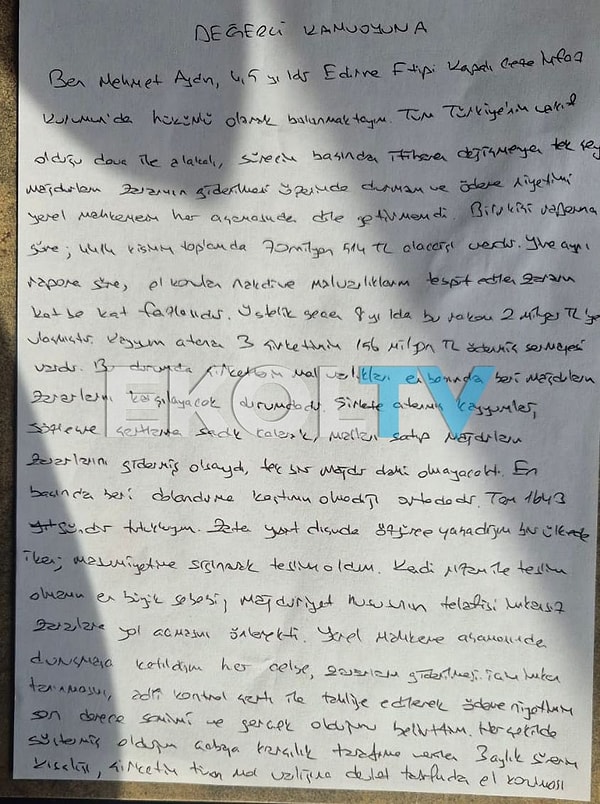 DEĞERLİ KAMUOYUNA
Ben Mehmet Aydın, 4,5 yıldır Edirne F tipi Kapalı Ceza İnfaz
Kurumun'da hükümlü olarak bulunmaktayım. Tüm Türkiye'nin vakıf
olduğu dava ile alakalı, sürecin başından itibaren değişmeyen tek şey
mağdurların zararının giderilmesi üzerinde durmam ve ödeme niyetimi
yerel mahkemenin her aşamasında dile getirmemdi. Bilirkişi raporuna
göre; kişinin toplamda 70 milyon 514 TL alacağı vardır. Yine aynı
rapora göre, el konulan nakdi ve malvarlıklarım tespit edilen zararın
kat be kat fazlasıdır. Üstelik geçen 8 yılda bu rakam 2 milyar TL'ye
ulaşmıştır. Kayyum atanan 3 şirketimin 156 milyon TL ödenmiş sermayesi
vardı. Bu durumda şirketlerin mal varlıkları en başından beri mağdurların
EKOL TV
zararlarını karşılayacak durumdadır. Şirkete atanmış kayyumlar,
sözleşme şartlarına sadık kalarak, malları satıp mağdurların
zararlarını gidermiş olsaydı, tek bir mağdur dahi olmayacaktı. En
başından beri dolandırma kastımın olmadığı ortadadır. Tam 1643
gündür tutukluyum. Zaten yurt dışında özgürce yaşadığım bir ülkede
iken; masumiyetime sığınarak teslim oldum. Kendi rızam ile teslim
olmamın en büyük sebebi, mağduriyet hususunun telafisi imkansız
zararlara yol açmasını önlemekti. Yerel Mahkeme aşamasında
duruşmaya katıldığım her celse, zararların giderilmesi için imkan
tanınmasını, adli kontrol şartı ile tahliye edilerek ödeme niyetimin
son derece samimi ve gerçek olduğunu belirttim. Her şekilde
göstermiş olduğum çabaya karşılık tarafıma verilen 3 aylık sürenin
kısalığı, şirketin tüm mal varlığına devlet tarafından el konması